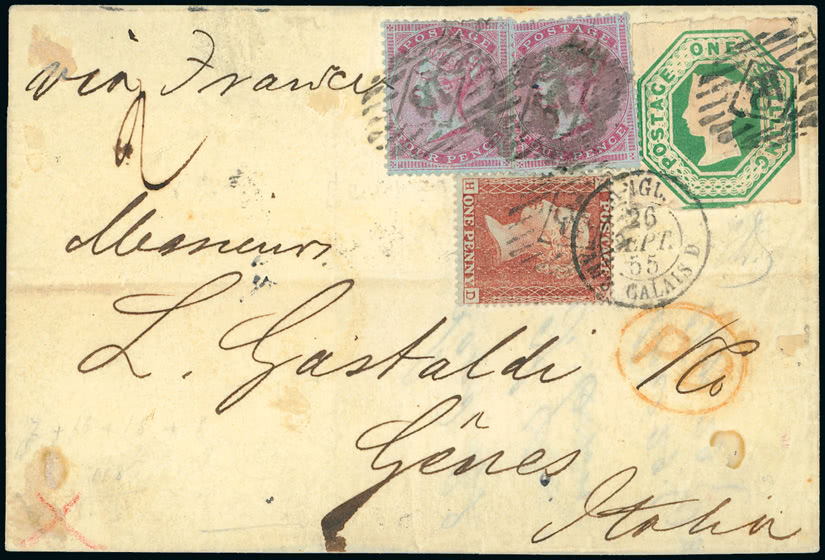 via France
2
Messieurs
L. Gastaldi / Co
Gênes
Italia
POSTAGE
FOUR PENCE
POSTAGE
FOUR PENCE
POSTAGE ONE SHILLING
POSTAGE
ONE PENNY
H D
ANGL.
26
SEPT.
55
CALAIS D
PD